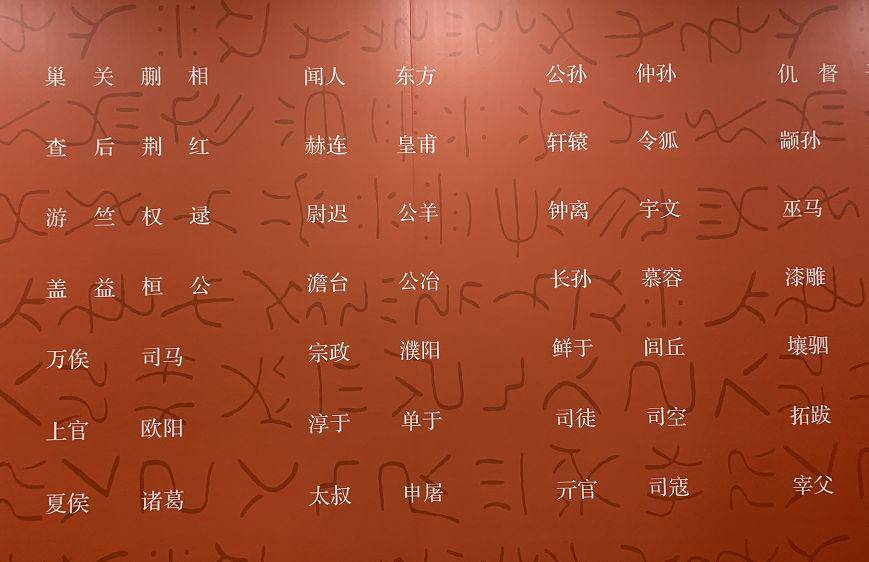 巢 关 蒯 相 闻人 东方 公孙 仲孙 仉 督
查 后 荆 红 赫连 皇甫 轩辕 令狐 颛孙
游 竺 权 逯 尉迟 公羊 钟离 宇文 巫马
盖 益 桓 公 澹台 公冶 长孙 慕容 漆雕
万俟 司马 宗政 濮阳 鲜于 闾丘 壤驷
上官 欧阳 淳于 单于 司徒 司空 拓跋
夏侯 诸葛 太叔 申屠 亓官 司寇 宰父